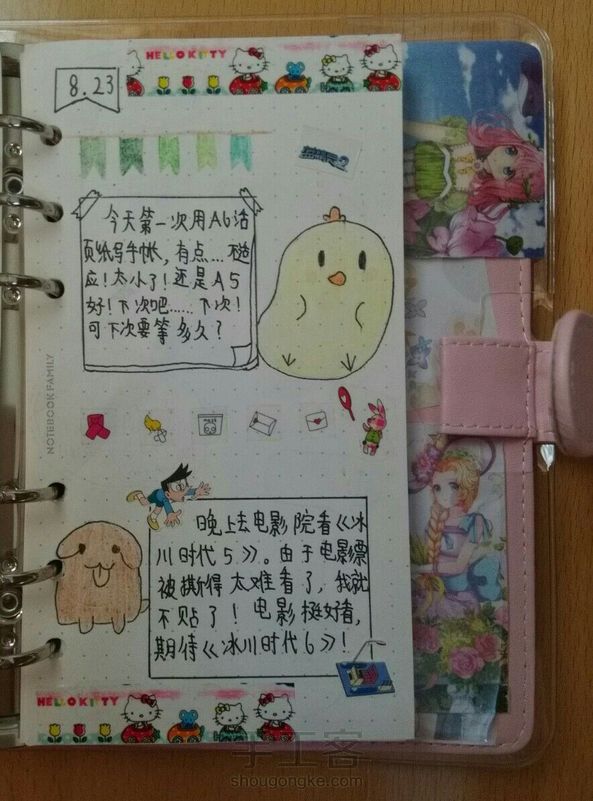 HELLO KITTY
8.23
今天第一次用A6活
页纸写手帐，有点……不适
应！太小了！还是A5
好！下次吧……下次！
可下次要等多久？
NOTEBOOK FAMILY
晚上去电影院看《冰
川时代5》。由于电影票
被撕得太难看了，我就
不贴了！电影挺好看，
期待《冰川时代6》！
HELLO KITTY
手工客
shougongke.com